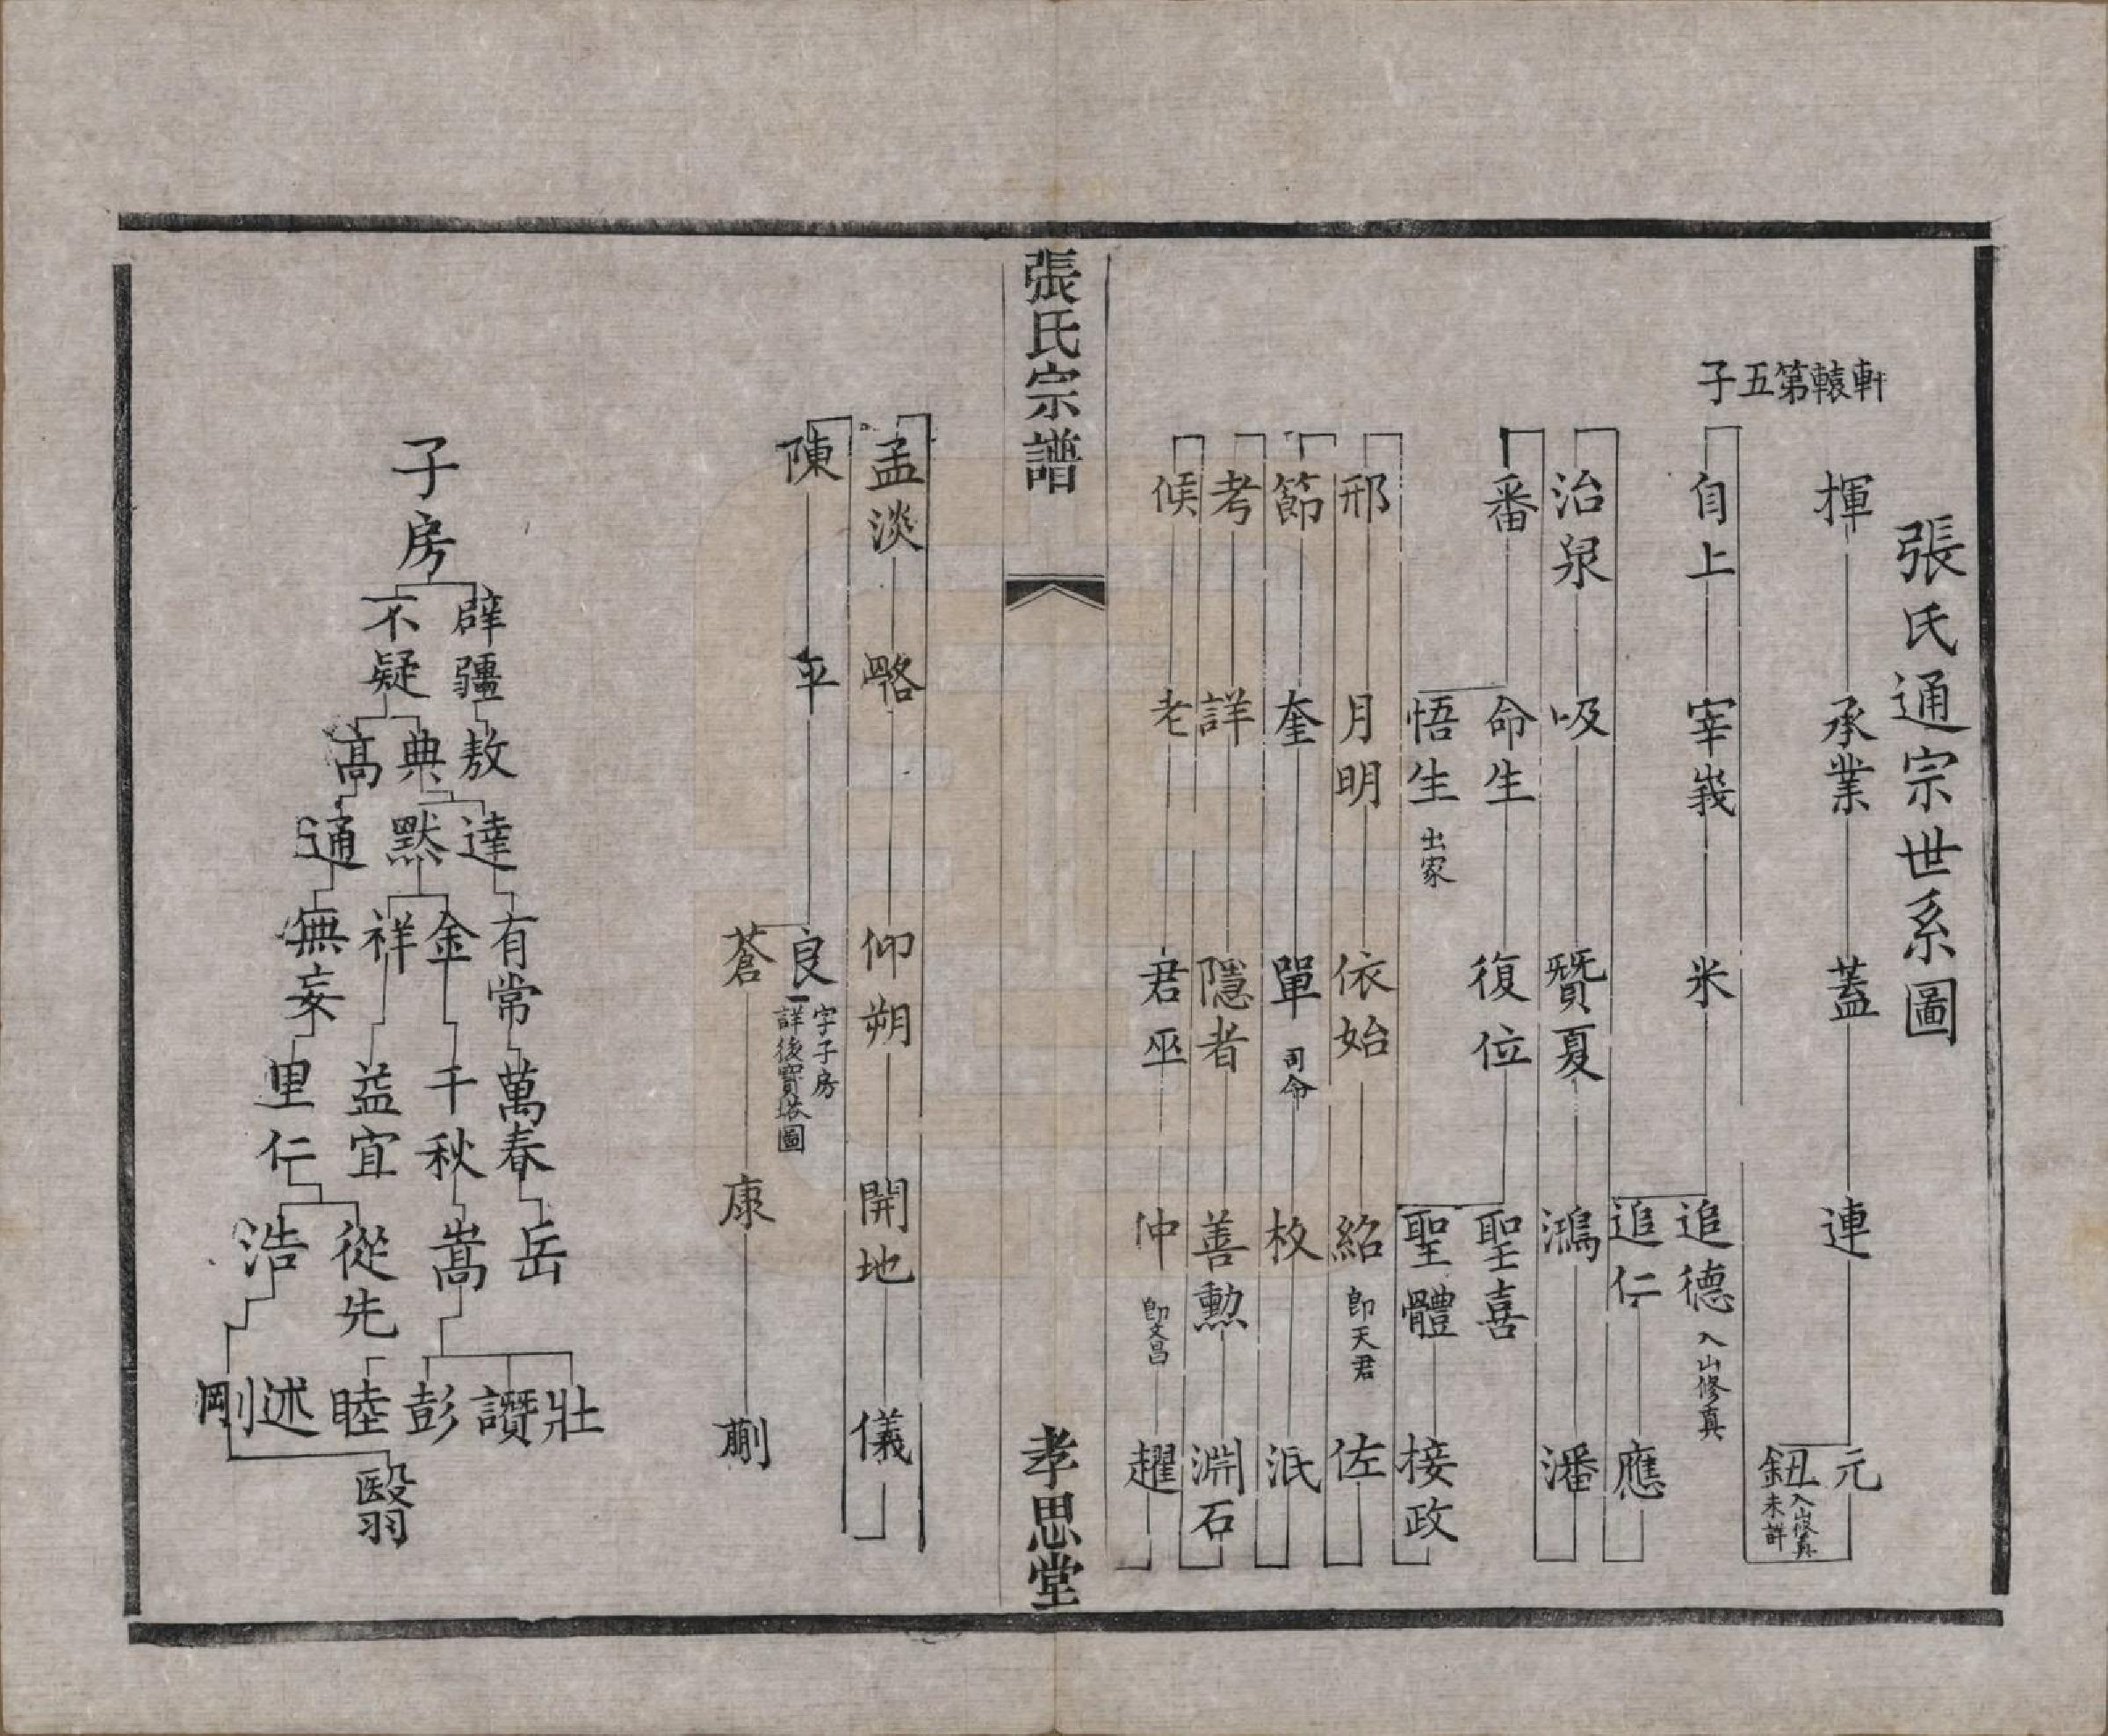 張氏通宗世系圖
軒轅第五子
揮 承業 蓋 連 元
鈕 入山修真 未詳
自上 宰 米 追德 入山修真
追仁 應
治泉 吸 贊夏 鴻 潘
番 命生 復位 聖喜
悟生 出家
聖體 接政
邢 月明 依始 紹 即天君 佐
節 奎 單 司命 枚 派
考 詳 隱者 善勳 淵石
候 老 君巫 仲 即文昌 趯
張氏宗譜
孝思堂
孟淡 略 仰朔 開地 儀
陳 平 良 字子房 詳後寶塔圖
蒼 康 蒯
子房
辟疆 不疑
敖 典 高
達 默 通
有常 金 祥 無妄
萬春 千秋 益宜 里仁
岳 嵩 從先 浩
壯 讚 彭 睦 述 剛
翳